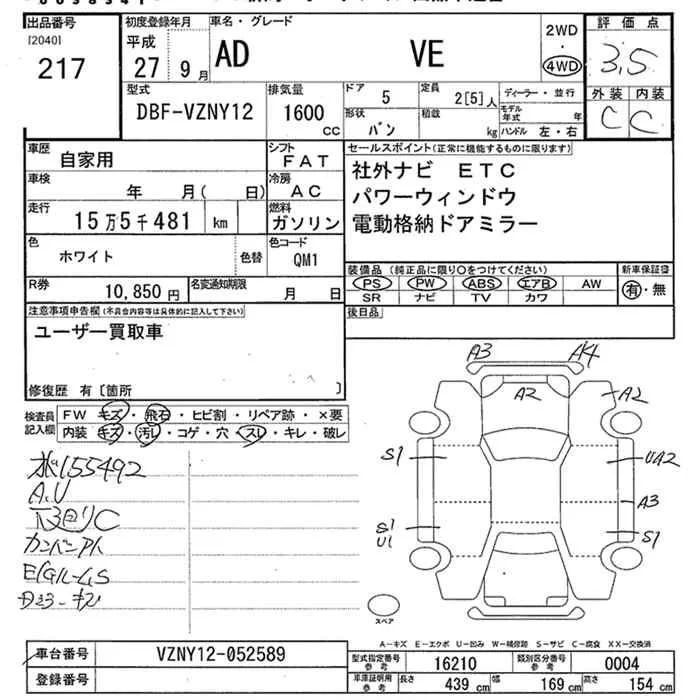 出品番号 初度登録年月 車名・グレード 2WD 評価点
[2040] 平成 ・
217 27 9月 AD VE 4WD 3.5
型式 排気量 ドア 5 定員 2[5]人 ディーラー・並行 外装 内装
DBF-VZNY12 1600 CC 形状 バン 積載 kg モデル年式 年 C C
ハンドル 左・右
車歴 自家用 シフト FAT セールスポイント(正常に機能するものに限ります)
車検 年 月( 日) 冷房 AC 社外ナビ ETC
走行 15万5千481 km 燃料 ガソリン パワーウィンドウ
電動格納ドアミラー
色 ホワイト 色替 色コード QM1
装備品(純正品に限り○をつけてください) 新車保証書
R券 10,850円 名変通知期限 月 日 PS PW ABS エアB AW 有・無
SR ナビ TV カワ
注意事項申告欄(不具合内容等は具体的に記入して下さい) 後日品
ユーザー買取車
修復歴 有〔箇所 〕
A3 AK4
A2 A2
検査員記入欄 FW キズ・飛石・ヒビ割・リペア跡・×要
内装 キズ・汚レ・コゲ・穴・スレ・キレ・破レ
S1 UA2
155492
A.U
A3
下回りC
S1 U1 S1
カンバンアト
スペア
A-キズ E-エクボ U-凹み W-補修跡 S-サビ C-腐食 XX-交換済
車台番号 VZNY12-052589 型式指定番号 参考 16210 類別区分番号 参考 0004
登録番号 車庫証明用 参考 長さ 439 cm 幅 169 cm 高さ 154 cm